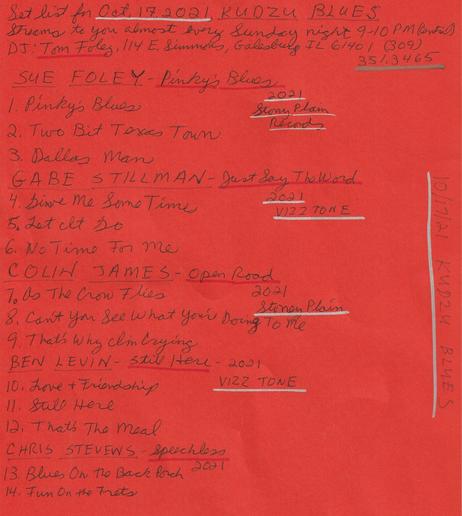 Set list for Oct, 17, 2021 KUDZU BLUES
Streams to you almost every Sunday night 9-10 PM (Central)
DJ: Tom Foley, 114 E. Simmons, Galesburg IL 61401 (309)
351.3465
SUE FOLEY - Pinky's Blues
2021
1. Pinky's Blues
Stony Plain
Records
2. Two Bit Texas Town
3. Dallas Man
GABE STILLMAN - Just Say The Word
4. Give Me Some Time
2021
VIZZ TONE
5. Let It Do
6. No Time For Me
COLIN JAMES - Open Road
7. As The Crow Flies
2021
Stoney Plain
8. Can't You See What You're Doing To Me
9. That's Why I'm Crying
BEN LEVIN - Still Here - 2021
10. Love + Friendship
VIZZ TONE
11. Still Here
12. That's The Meal
CHRIS STEVEWS - Speechless
2021
13. Blues On the Back Porch
14. Fun On the Frets
10/17/21 KUDZU BLUES